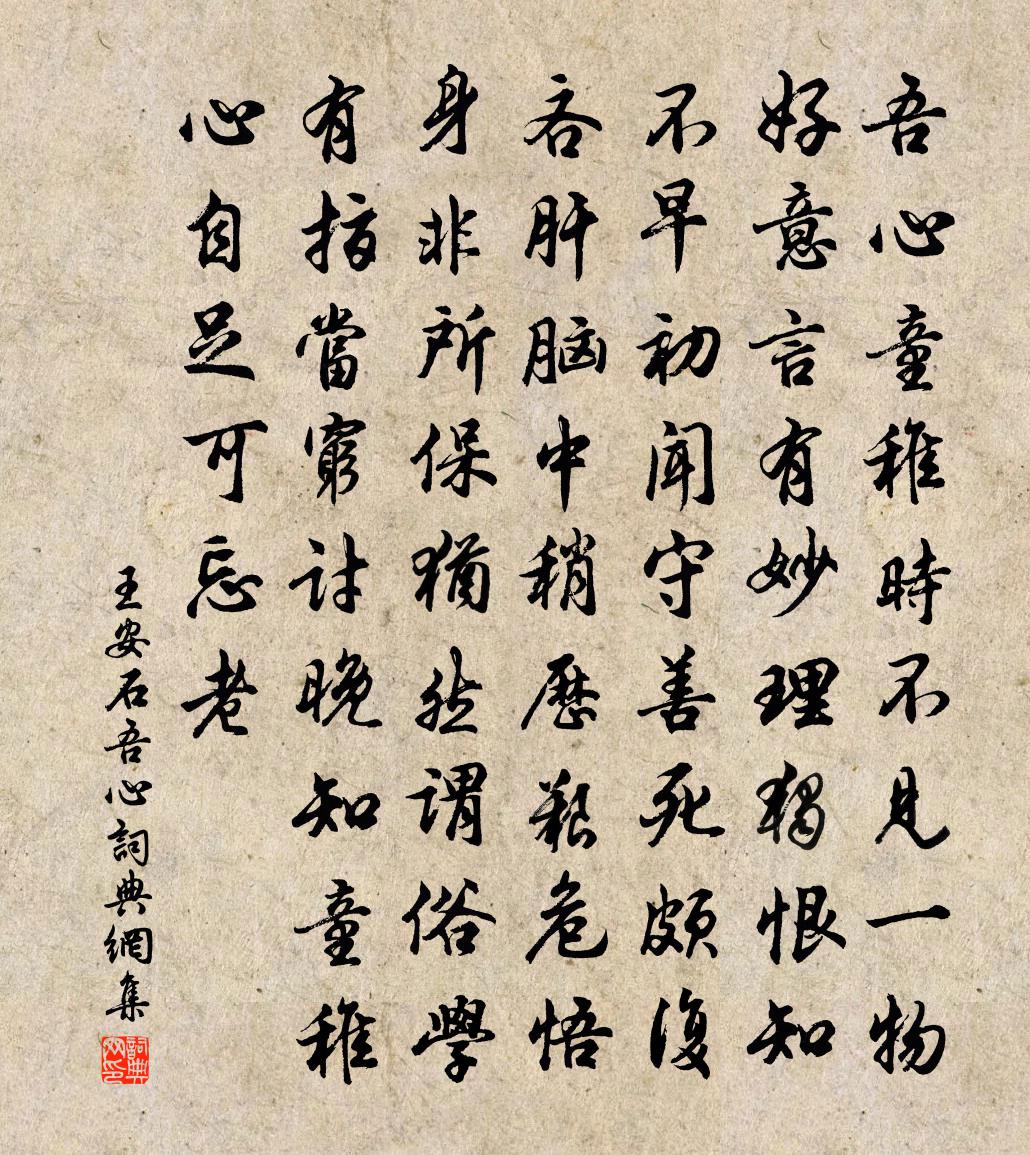 吾心童稚時不見一物
好意言有妙理獨恨知
不早初聞守善死頗復
吝肝脑中稍歷艱危悟
身非所保猶然謂俗學
有指當窮討晚知童稚
心自足可忘老
王安石吾心詞典網集
詞典网印